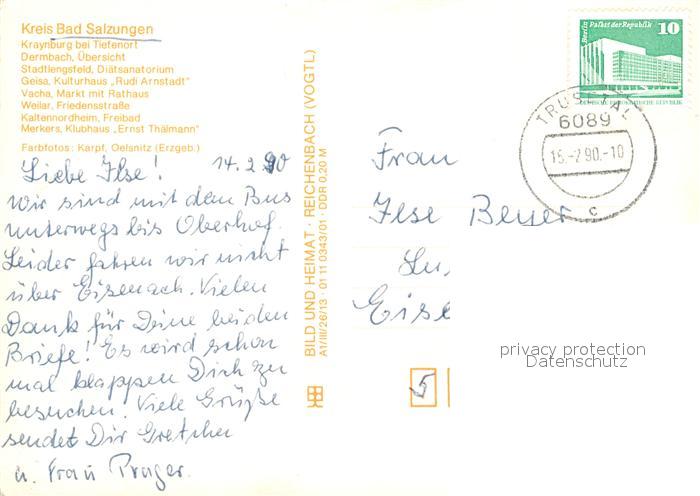 Kreis Bad Salzungen
Kraynburg bei Tiefenort
Dermbach, Übersicht
Stadtlengsfeld, Diätsanatorium
Geisa, Kulturhaus „Rudi Arnstadt"
Vacha, Markt mit Rathaus
Weilar, Friedensstraße
Kaltennordheim, Freibad
Merkers, Klubhaus „Ernst Thälmann"
Farbfotos: Karpf, Oelsnitz (Erzgeb.)
Liebe Ilse! 14.2.90
Wir sind mit dem Bus
unterwegs bis Oberhof.
Leider fahren wir nicht
über Eisenach. Vielen
Dank für Deine beiden
Briefe! Es wird schon
mal klappen Dich zu
besuchen. Viele Grüße
sendet Dir Gretchen
u. Frau Prager.
BILD UND HEIMAT · REICHENBACH (VOGTL)
A1/III/26/13 · 01 11 0343/01 · DDR 0,20 M
Berlin Palast der Republik
10
DEUTSCHE DEMOKRATISCHE REPUBLIK
TRUSETAL
6089
15.-2.90.-10
c
Frau
Ilse Beyer
Lu,
Eise
5
privacy protection
Datenschutz